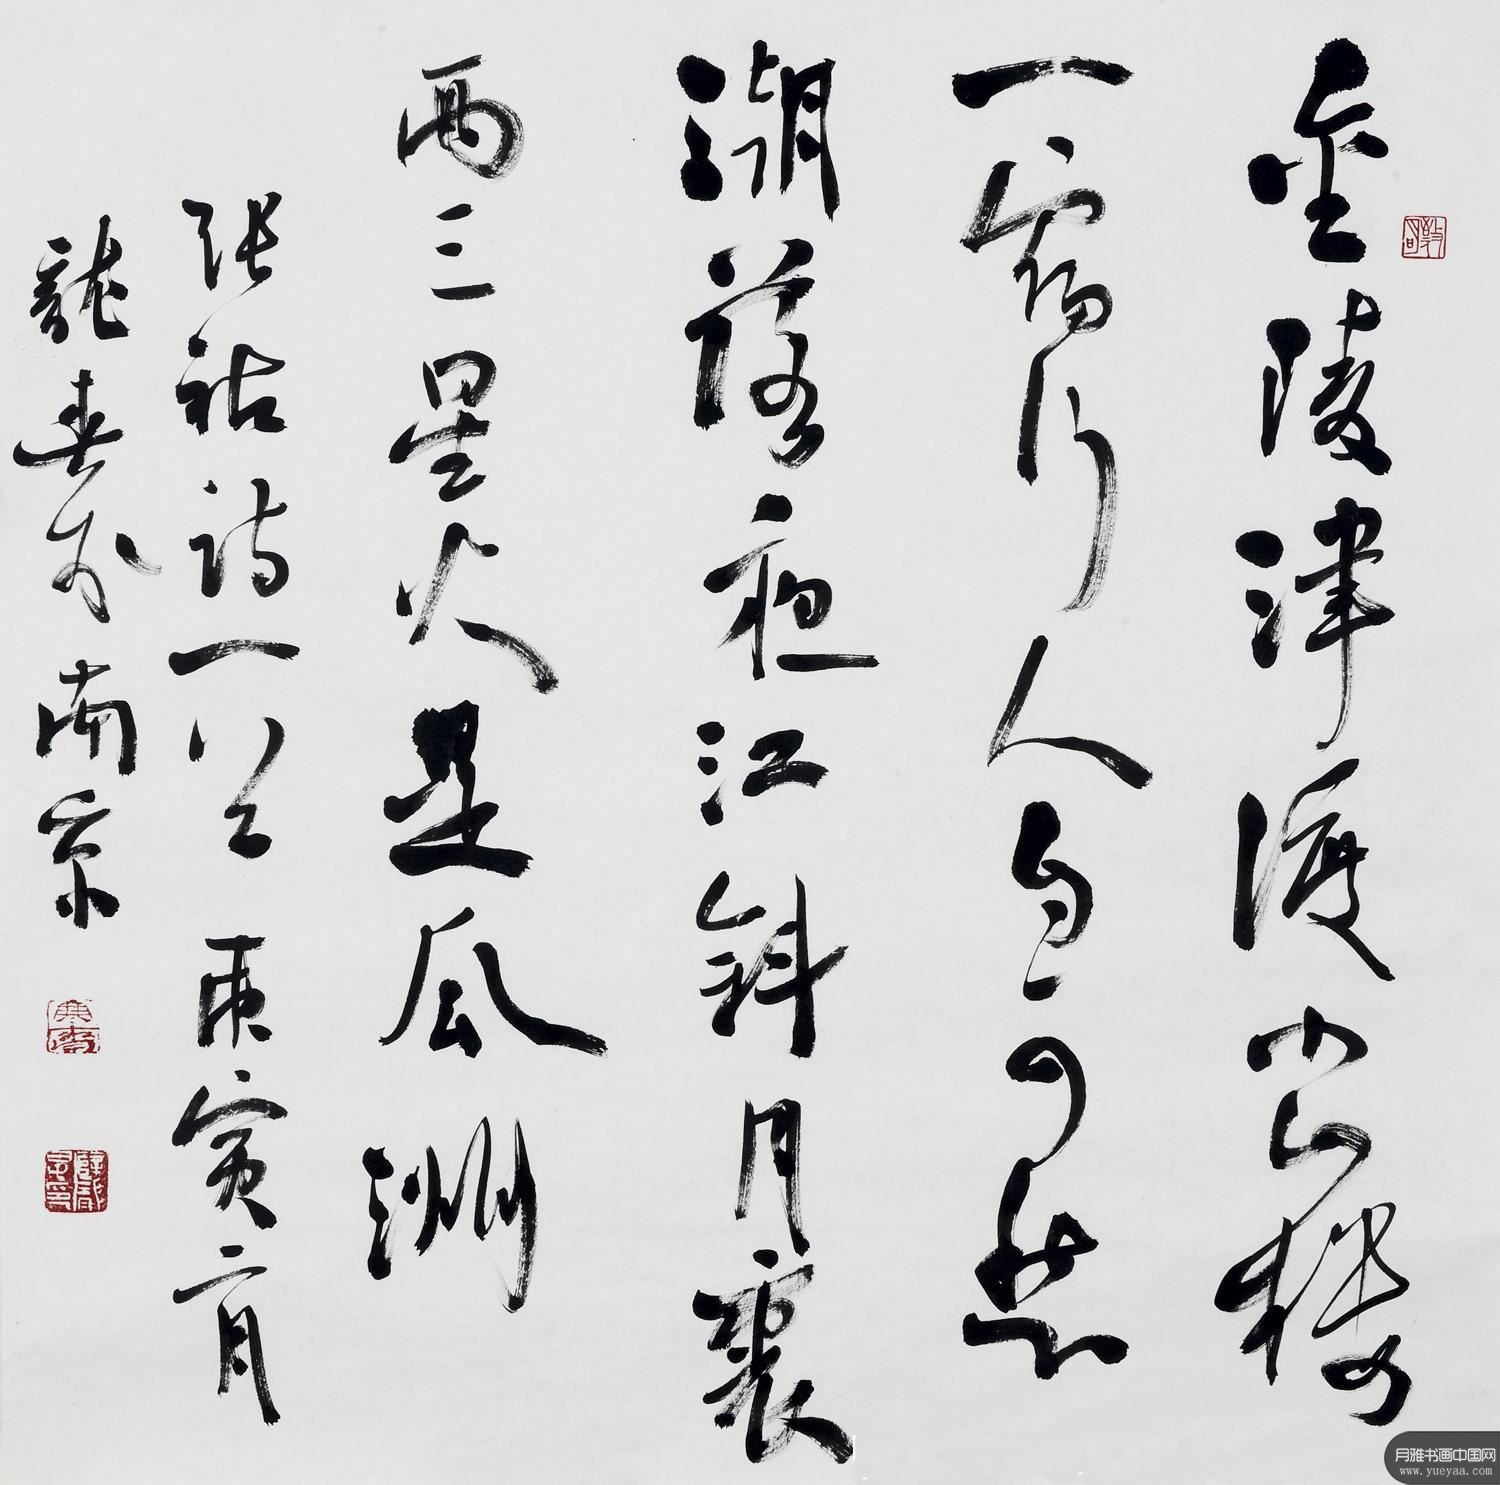 金陵津渡小山樓
一宿行人自可愁
潮落夜江斜月裏
兩三星火是瓜洲
張祜詩一首 庚寅二月
龍春於南京
月雅书画中国网
www.yueyaa.com